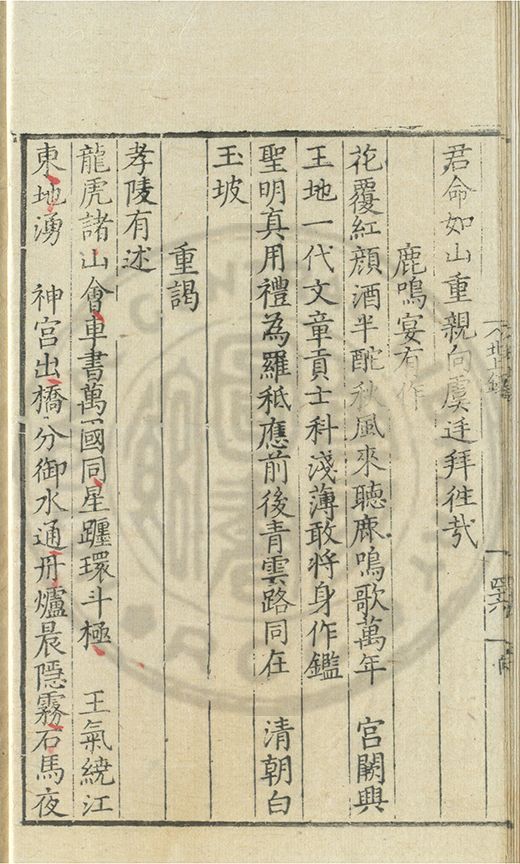 君命如山重親向虞廷拜徃哉
鹿鳴宴有作
花覆紅顔酒半酡秋風來聽鹿鳴歌萬年 宮闕興
王地一代文章貢士科淺薄敢將身作鑑
聖明真用禮為羅秪應前後青雲路同在 清朝白
玉坡
重謁
孝陵有述
龍虎諸山會車書萬國同星躔環斗極 王氣繞江
東地湧 神宮出橋分御水通丹爐晨隱霧石馬夜